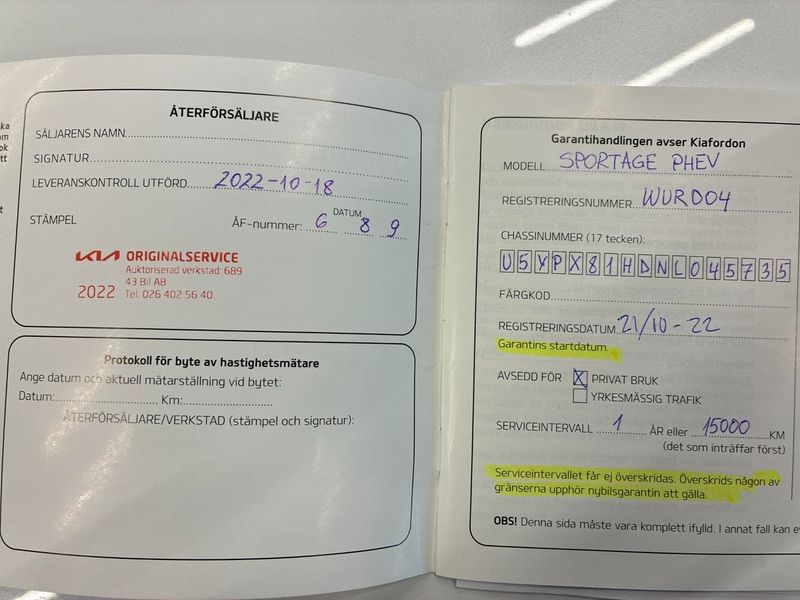 ka
om
ok
tt
t
ÅTERFÖRSÄLJARE
SÄLJARENS NAMN
SIGNATUR
LEVERANSKONTROLL UTFÖRD 2022-10-18
DATUM
STÄMPEL
ÅF-nummer: 6 8 9
KIA ORIGINALSERVICE
Auktoriserad verkstad: 689
43 Bil AB
2022 Tel: 026 402 56 40
Protokoll för byte av hastighetsmätare
Ange datum och aktuell mätarställning vid bytet:
Datum: Km:
ÅTERFÖRSÄLJARE/VERKSTAD (stämpel och signatur):
Garantihandlingen avser Kiafordon
MODELL SPORTAGE PHEV
REGISTRERINGSNUMMER WUR004
CHASSINUMMER (17 tecken):
U5YPX81HDNL045735
FÄRGKOD
REGISTRERINGSDATUM 21/10-22
Garantins startdatum.
AVSEDD FÖR X PRIVAT BRUK
YRKESMÄSSIG TRAFIK
SERVICEINTERVALL 1 ÅR eller 15000 KM
(det som inträffar först)
Serviceintervallet får ej överskridas. Överskrids någon av
gränserna upphör nybilsgarantin att gälla.
OBS! Denna sida måste vara komplett ifylld. I annat fall kan